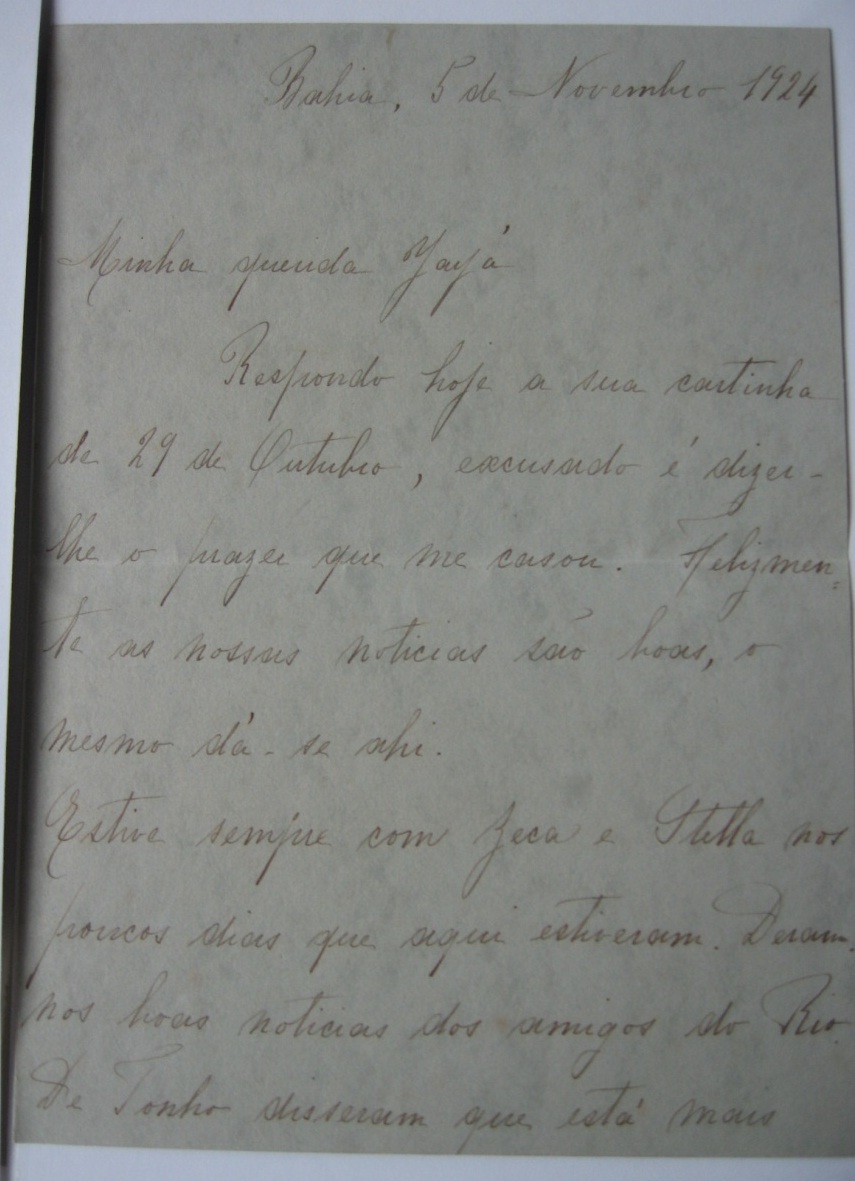 Bahia, 5 de Novembro 1924
Minha querida Yayá
Respondo hoje a sua cartinha
de 29 de Outubro, excusado é dizer-
lhe o prazer que me casou. Felizmen=
te as nossas noticias são boas, o
mesmo dá-se ahi.
Estive sempre com Zeca e Stella nos
poucos dias que aqui estiveram. Deram-
nos boas noticias dos amigos do Rio.
De Tonho disseram que está mais